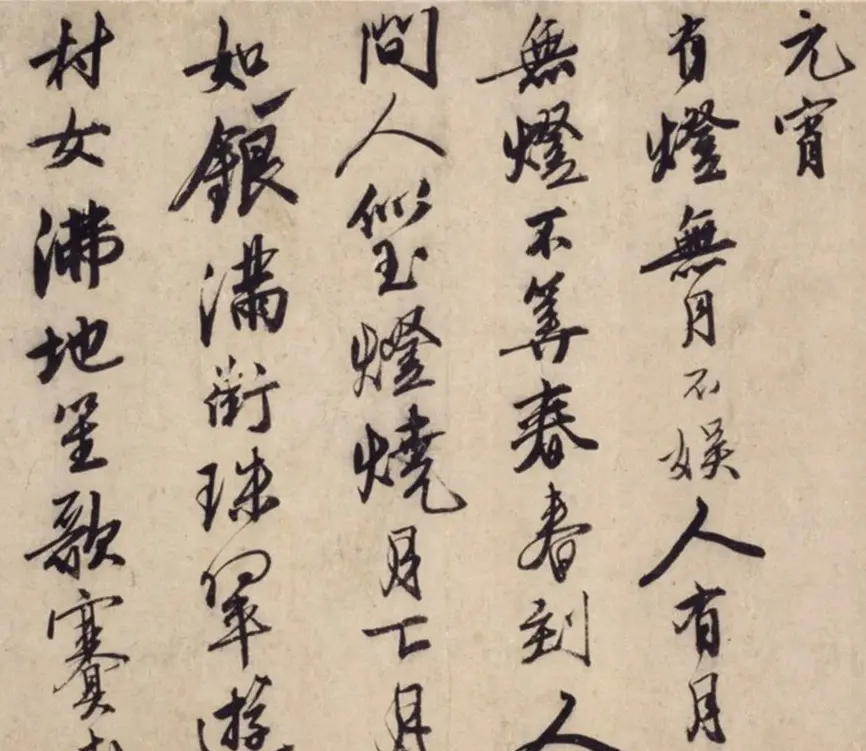 元宵
有燈無月不娛人有月
無燈不筭春春到人
間人似玉燈燒月下月
如銀滿街珠翠遊
村女沸地笙歌賽